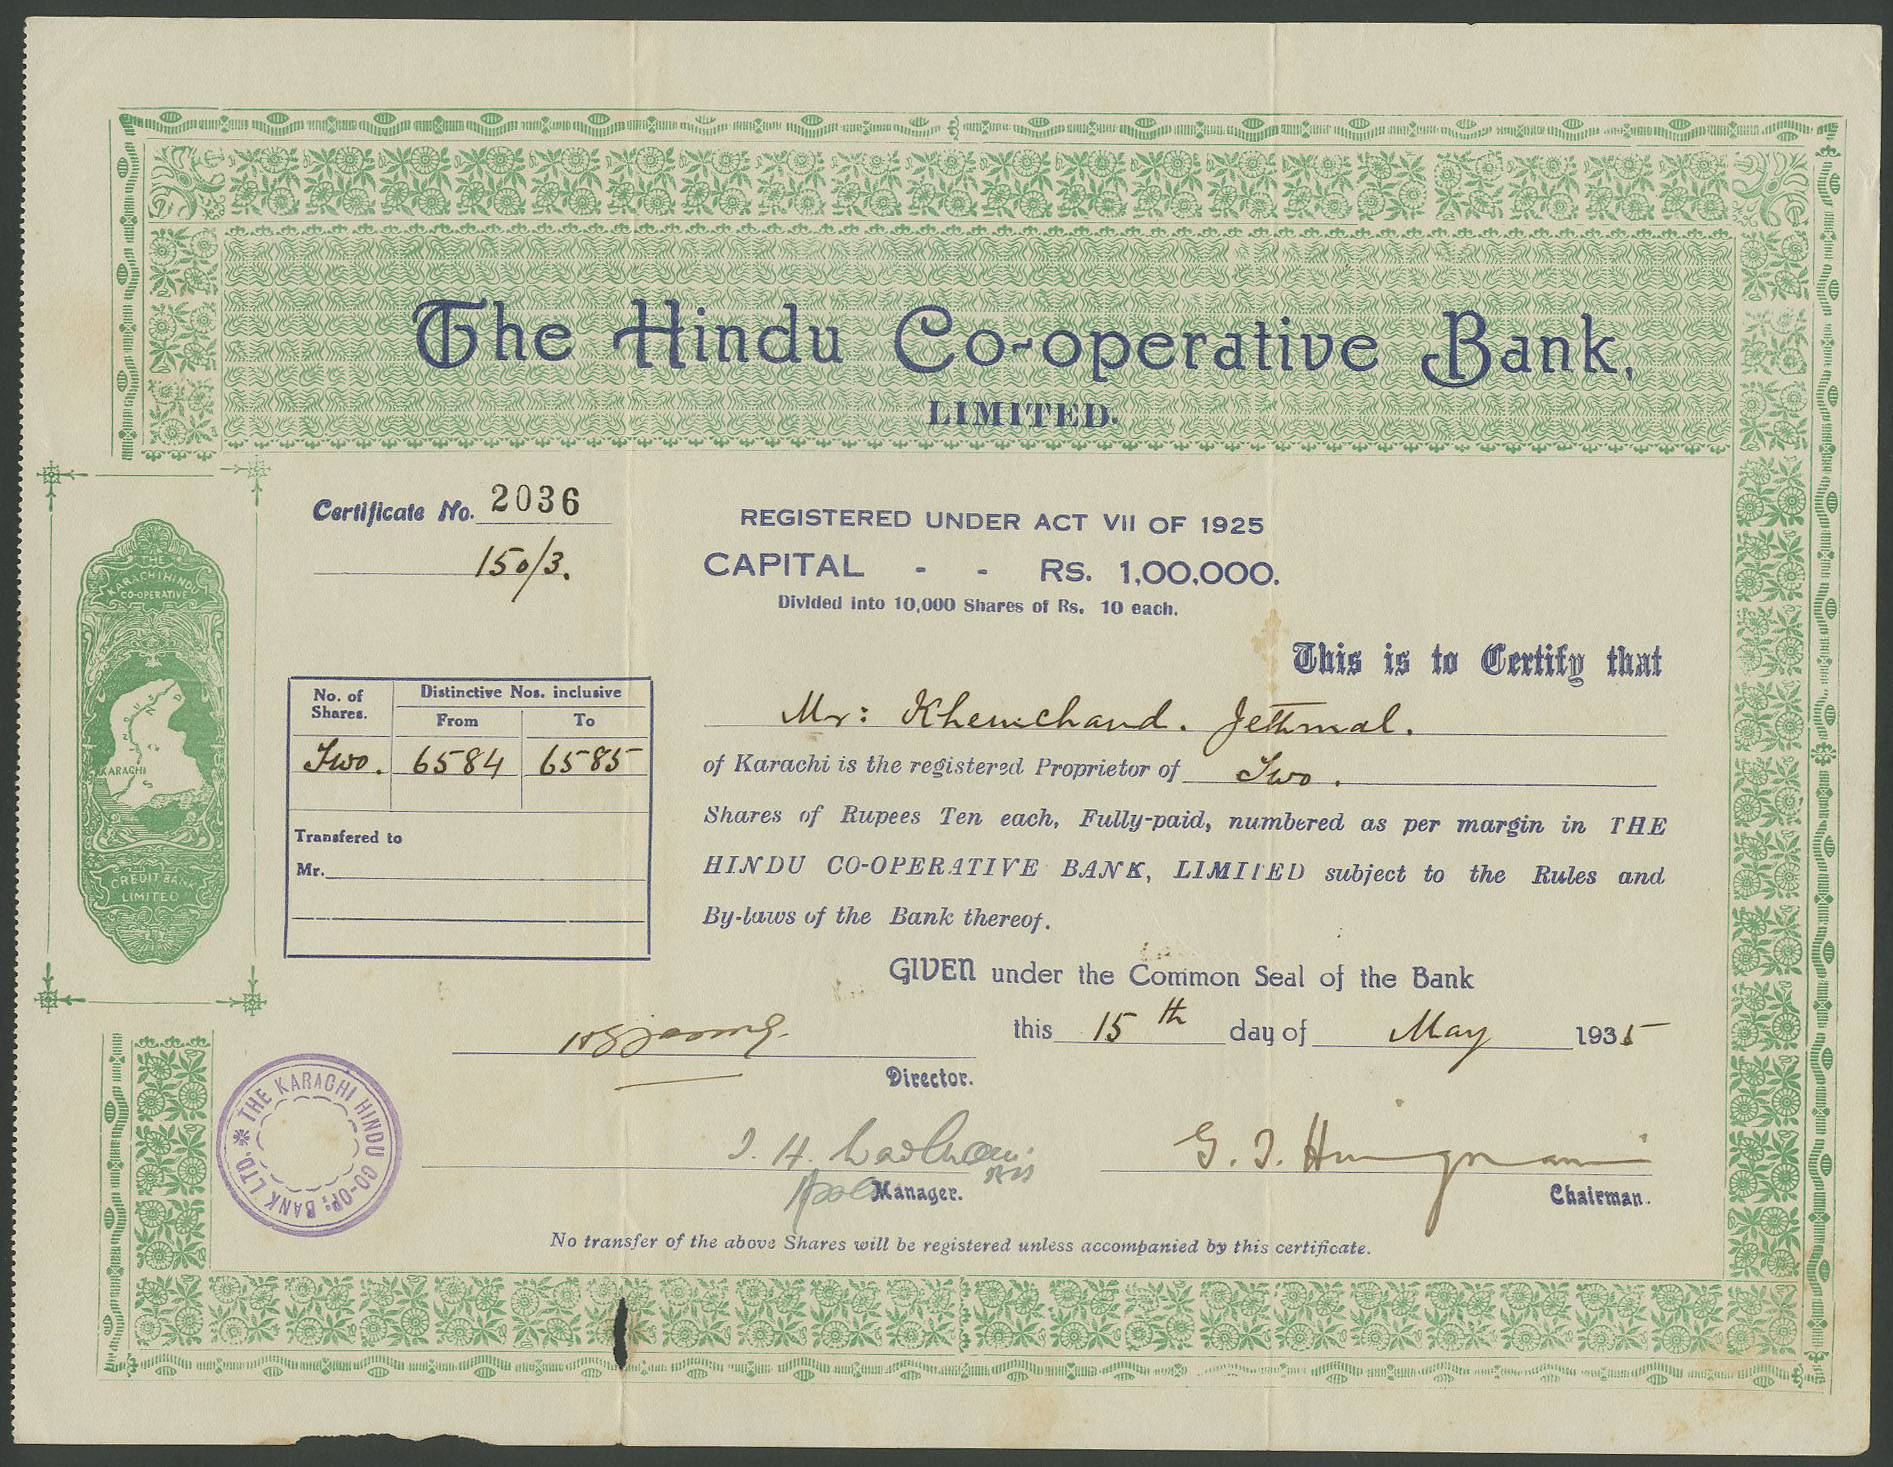 The Hindu Co-operative Bank,
LIMITED.
Certificate No. 2036
150/3.
REGISTERED UNDER ACT VII OF 1925
CAPITAL - - RS. 1,00,000.
Divided into 10,000 Shares of Rs. 10 each.
THE
KARACHI HINDU
CO-OPERATIVE
KARACHI
CREDIT BANK
LIMITED
No. of Shares.
Distinctive Nos. inclusive
From To
Two. 6584 6585
Transfered to
Mr.
This is to Certify that
Mr: Khemchand. Jethmal.
of Karachi is the registered Proprietor of Two.
Shares of Rupees Ten each, Fully-paid, numbered as per margin in THE
HINDU CO-OPERATIVE BANK, LIMITED subject to the Rules and
By-laws of the Bank thereof.
GIVEN under the Common Seal of the Bank
this 15th day of May 1935
Director.
THE KARACHI HINDU CO-OP: BANK LTD.
Manager.
G. T. 
Chairman.
No transfer of the above Shares will be registered unless accompanied by this certificate.